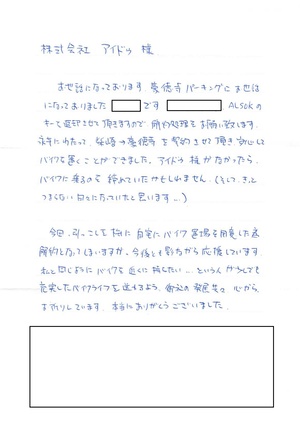 株式会社 アイドゥ 様
お世話になっております 豪徳寺パーキングにお世話
になっておりました です ALSOKの
キーを返却させて頂きますので、解約処理をお願い致します。
永年にわたって、 豪徳寺 を契約させて頂き 安心して
バイクを置くことができました。アイドゥ 様がなかったら、
バイクに乗るのを 諦めていたかもしれません (そして、きっと
つまらない 日々になっていたと思います…)
今回、引っこしを機に 自宅にバイク置場を用意した為
解約となってしまいますが、今後とも影ながら応援しています。
私と同じようにバイクを近くに 置きたい… という人が少しでも
充実したバイクライフを送れるよう、御社の発展を 心から
お祈りしています。本当にありがとうございました。